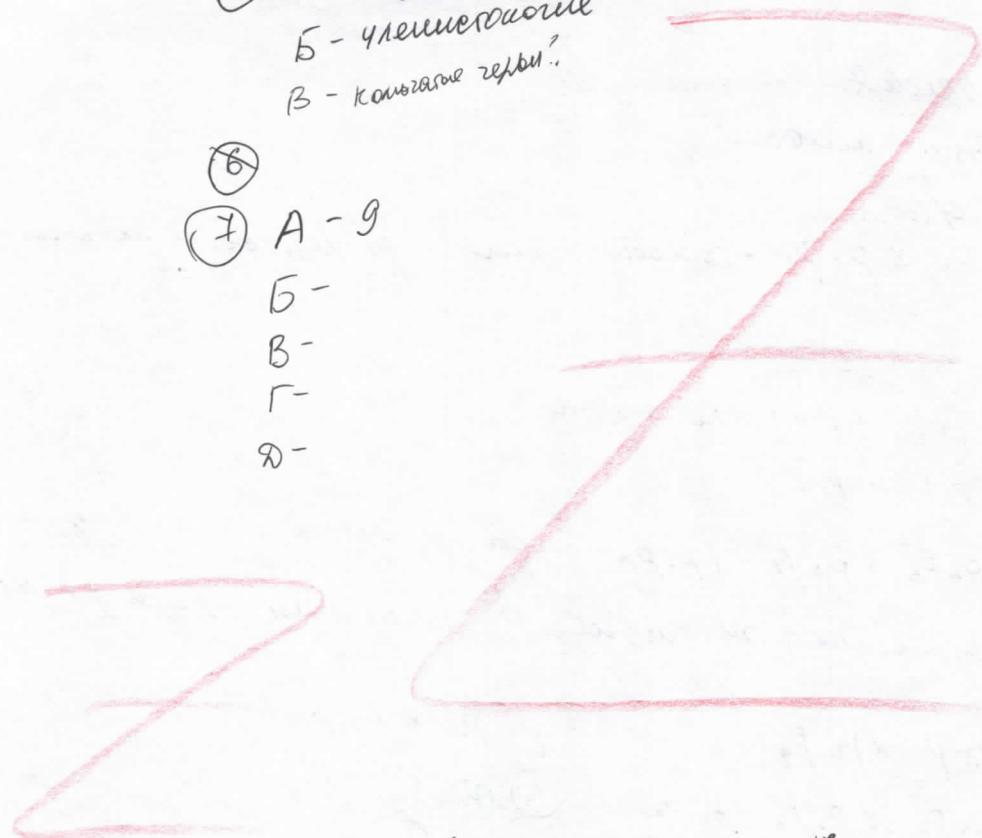 Б - членистоногие
В - кольчатые черви?
6
7 А - д
Б -
В -
Г -
Д -